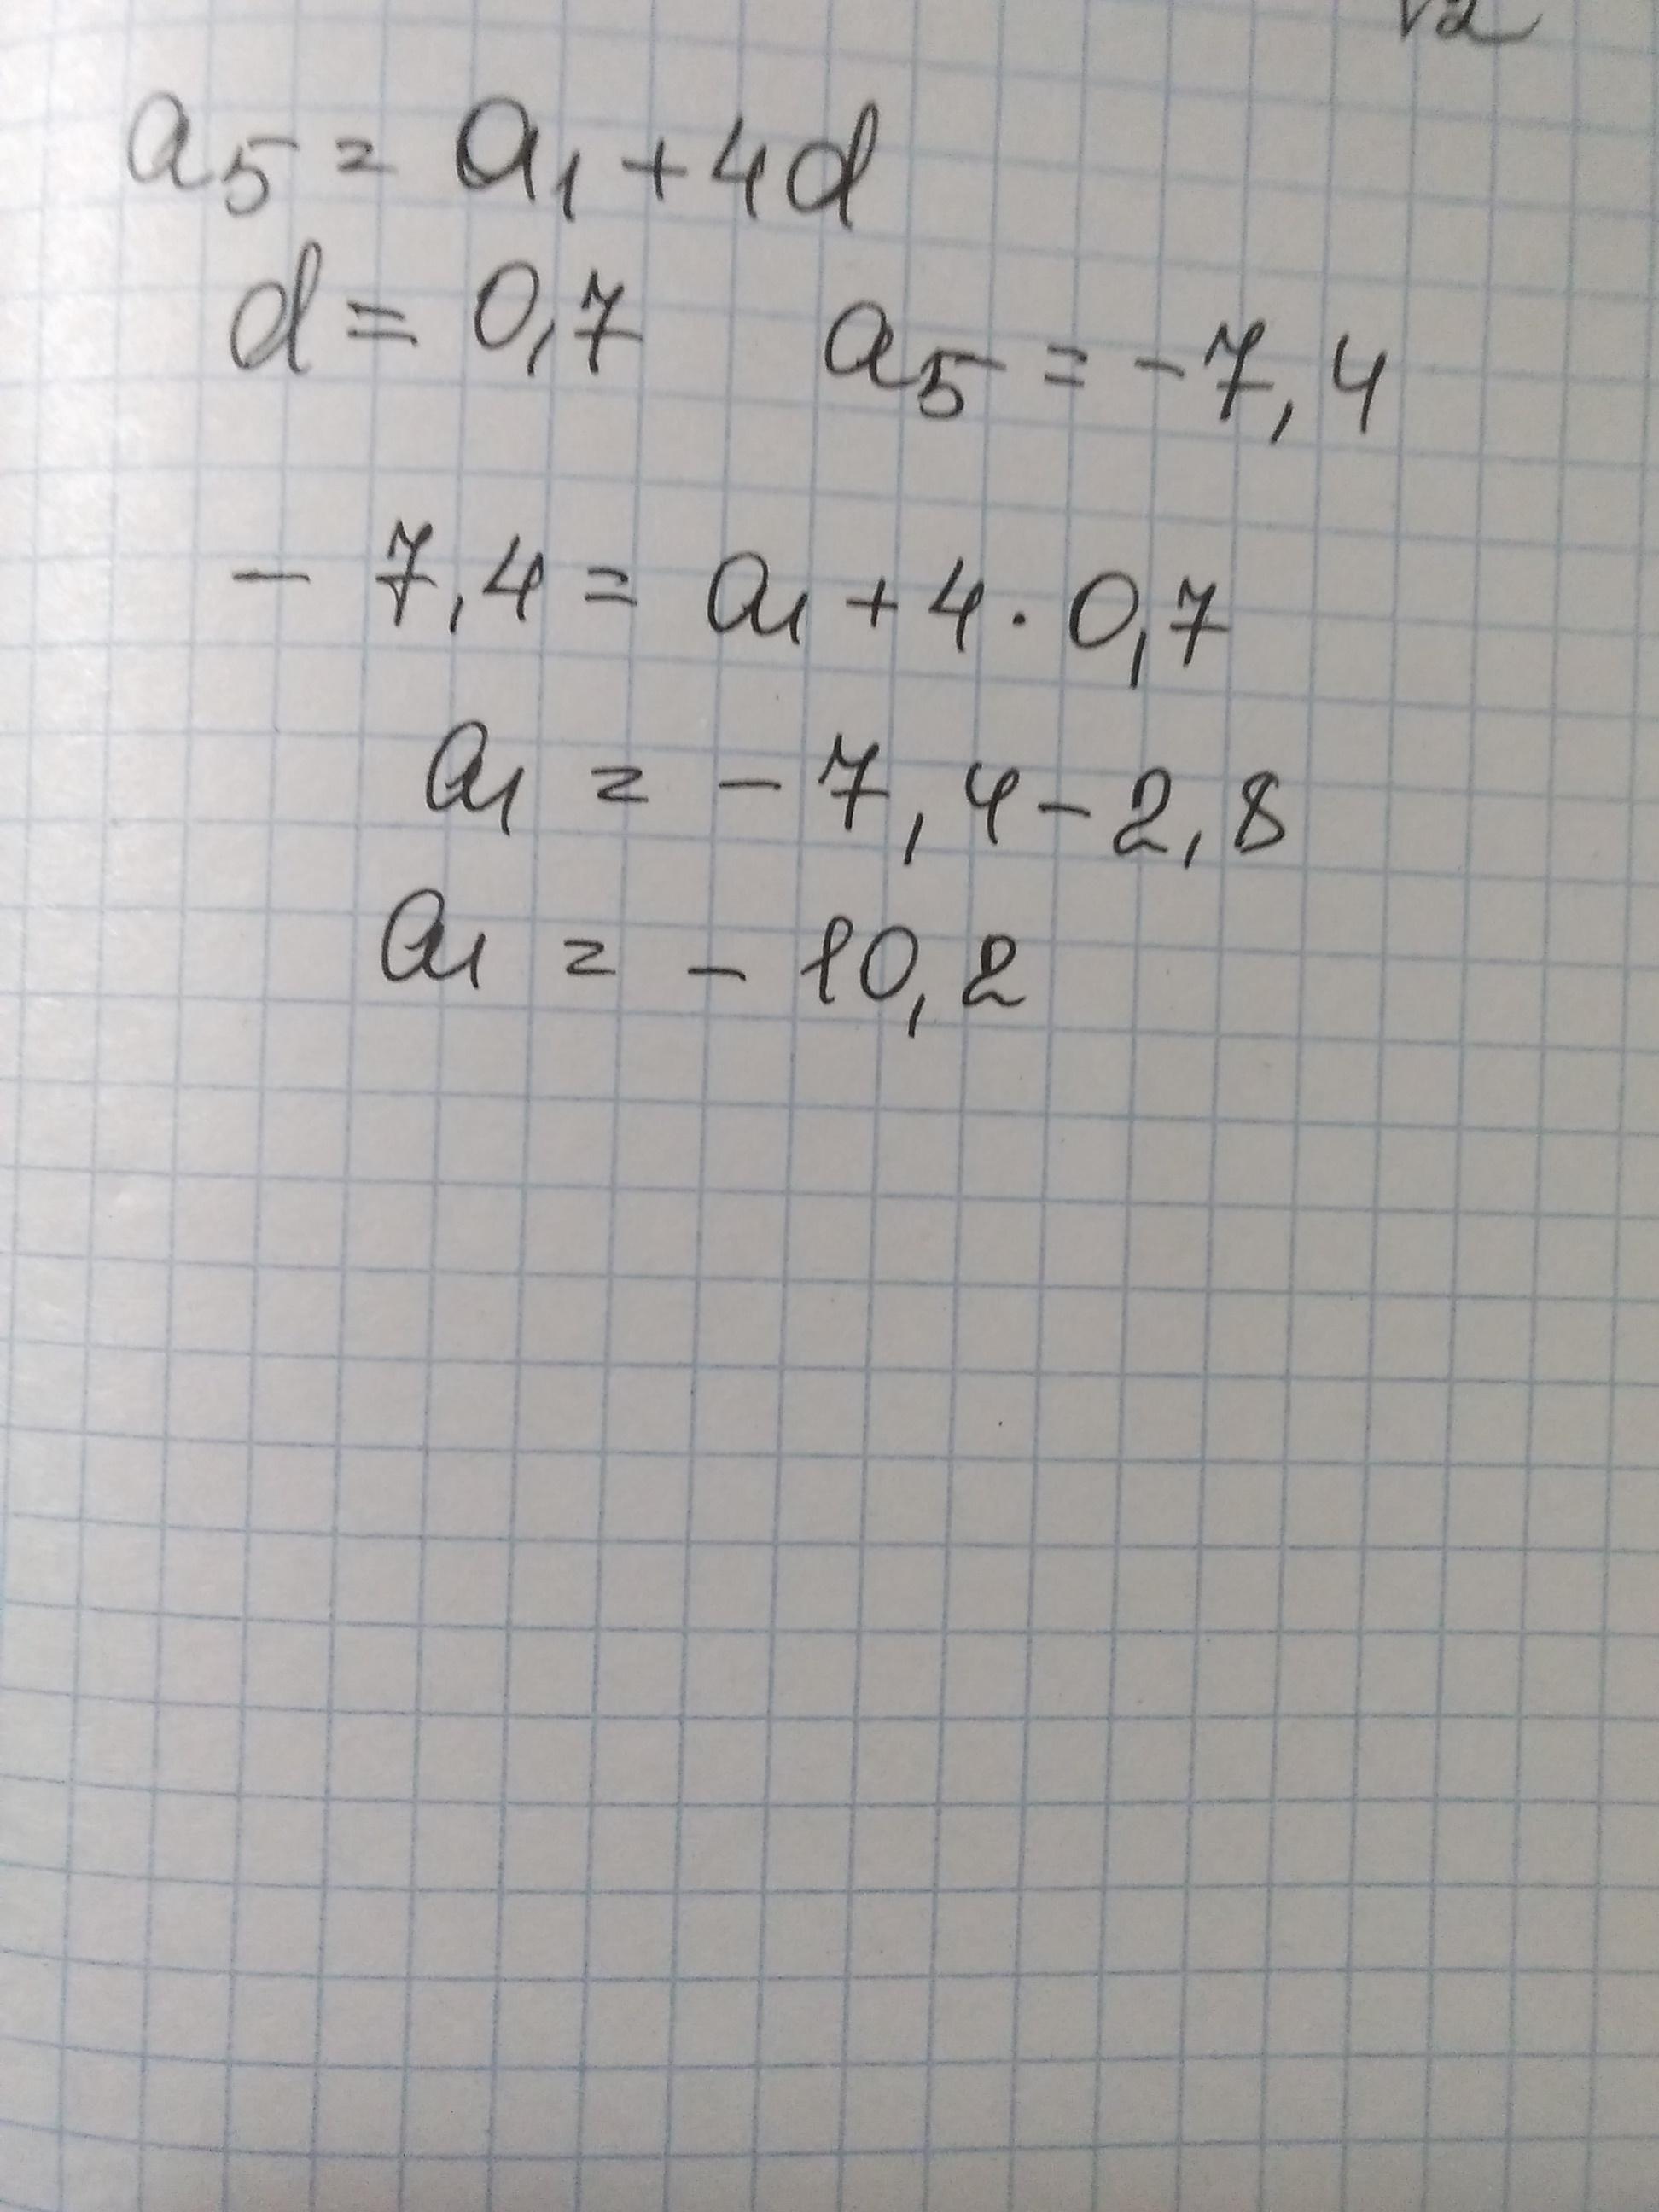 √2
a₅ = a₁ + 4d
d = 0,7 a₅ = -7,4
- 7,4 = a₁ + 4 · 0,7
a₁ = - 7,4 - 2,8
a₁ = - 10,2